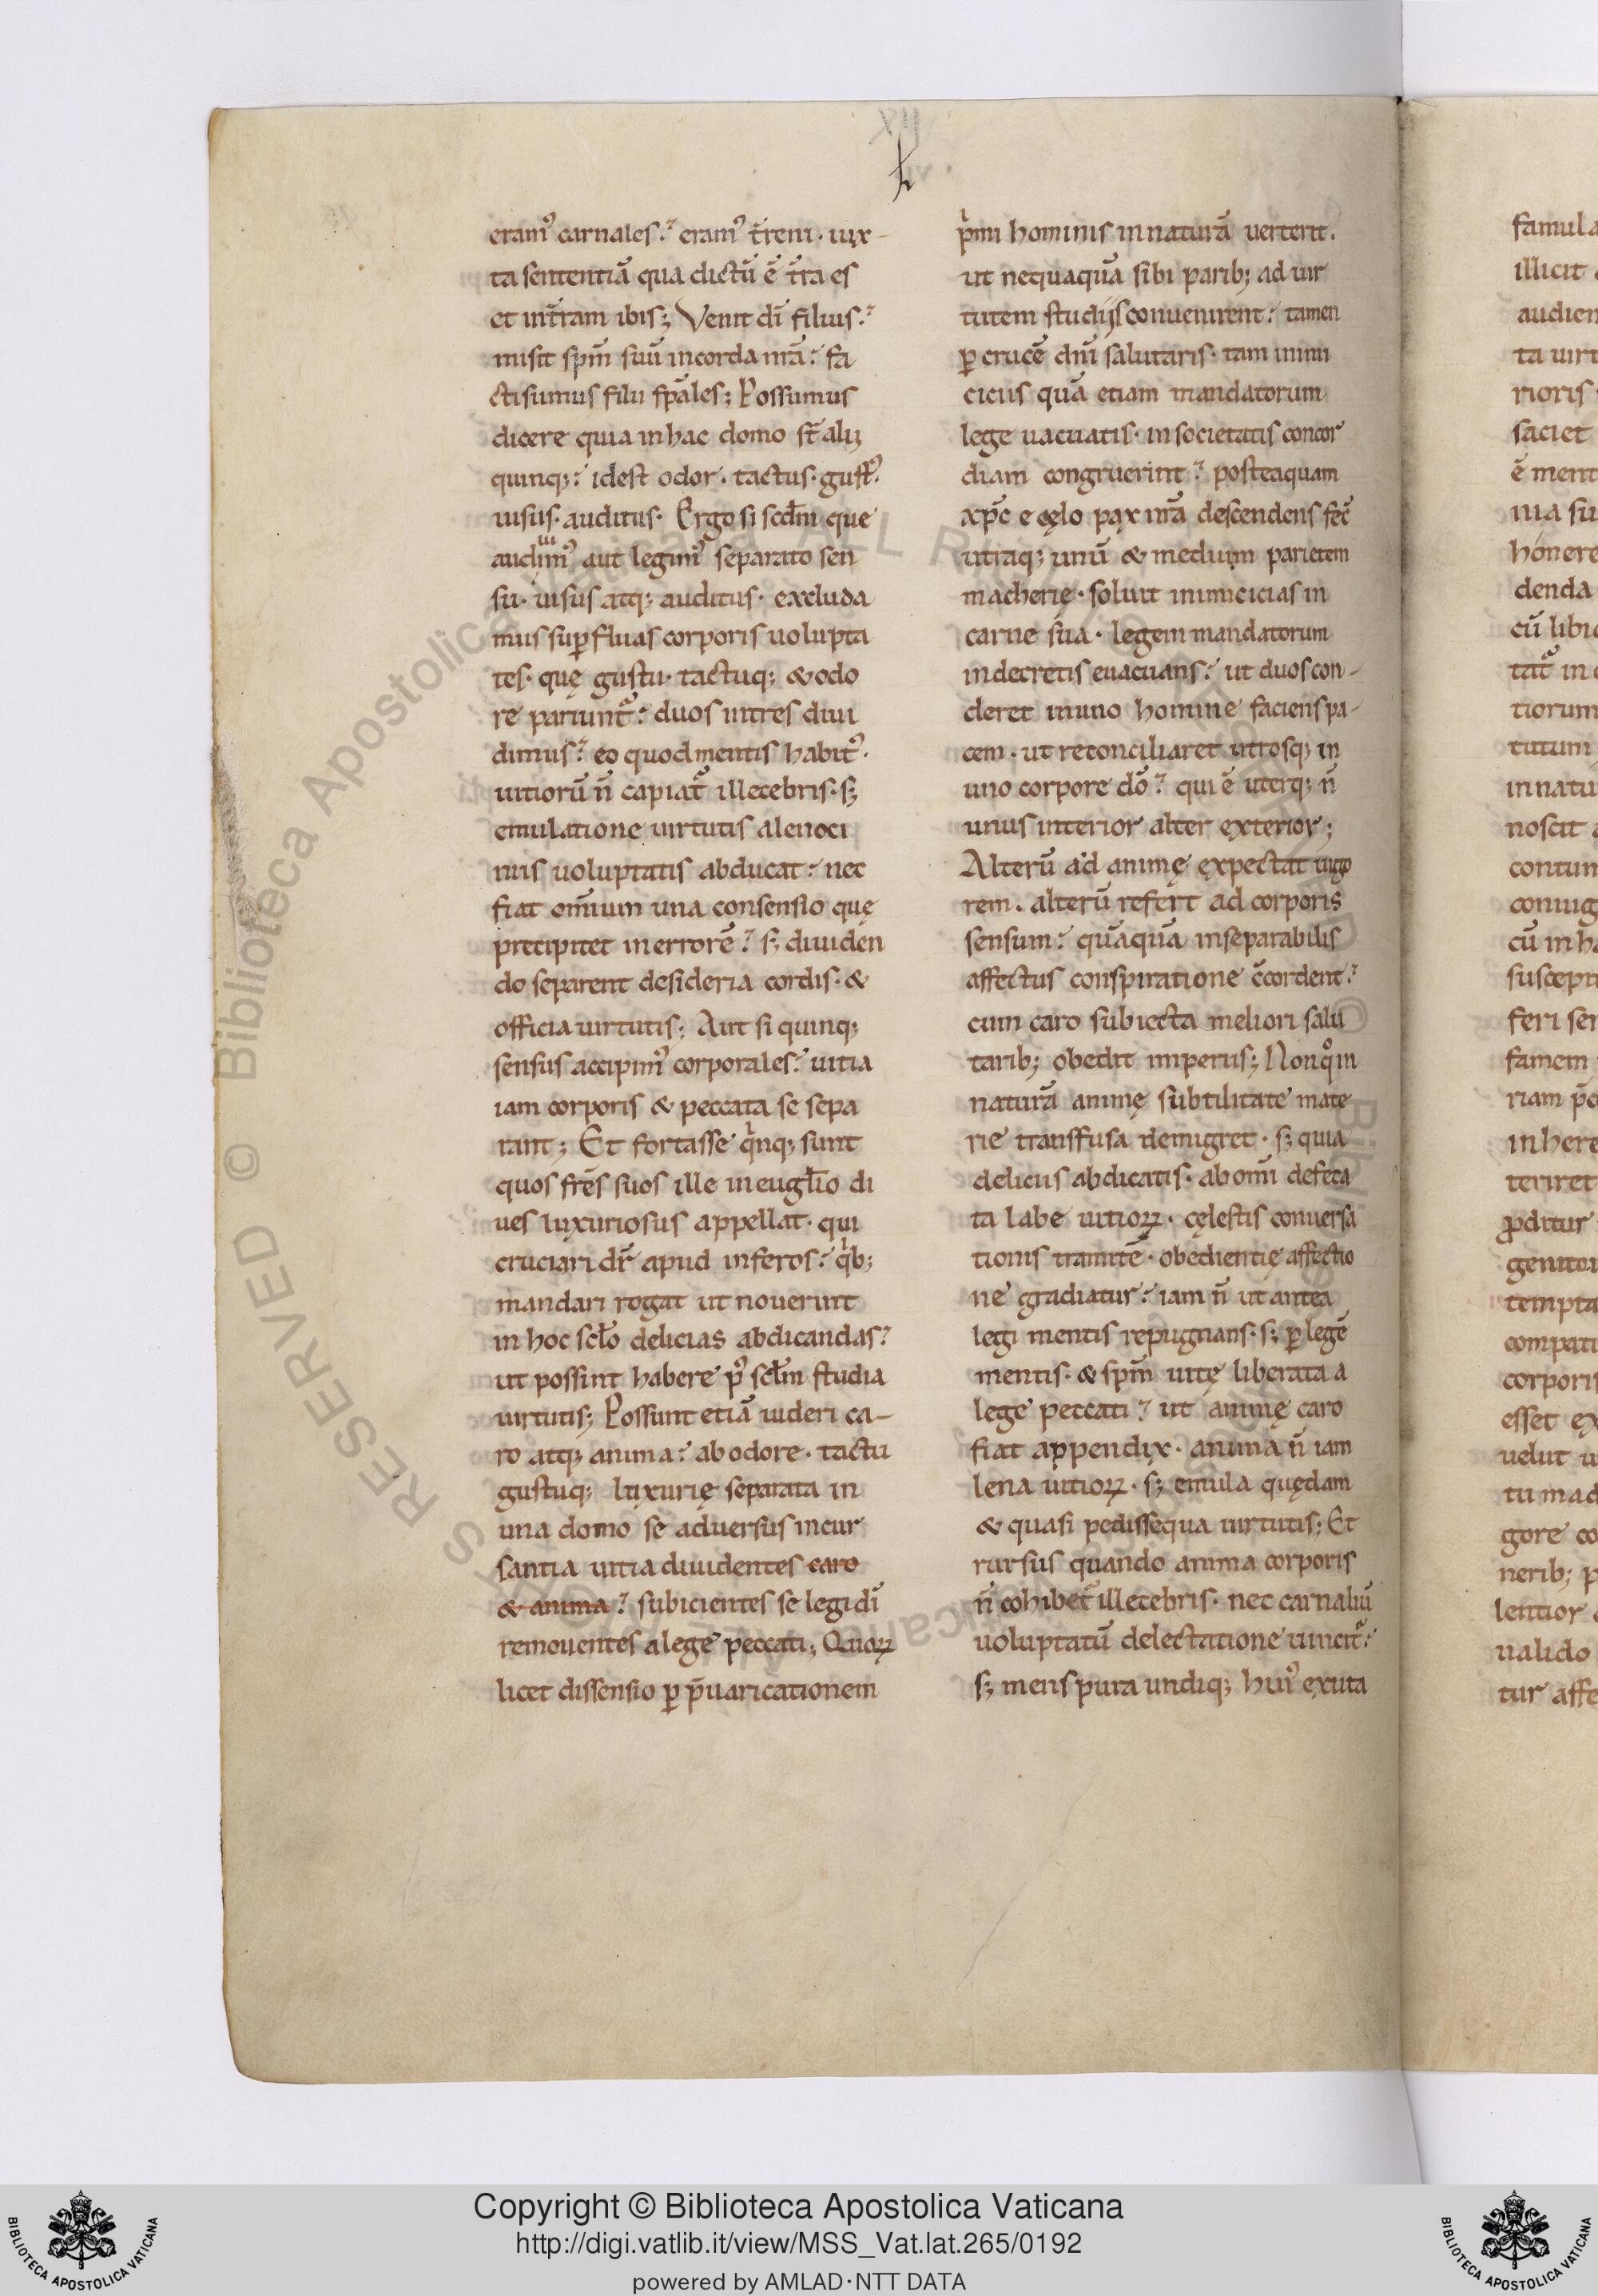 eramꝰ carnales. eramꝰ t̄reni. iux-
ta sententiā qua dictū ē t̄ra es
et int̄ram ibis; Venit dī filius.
misit sp̄m suū in corda nr̄a. fa
cti sumus filii sp̄ales; Possumus
dicere quia in hac domo st̄ alii
quinq; idest odor. tactus. gustꝰ.
uisus. auditus. Ergo si scd̄m que
audiuimꝰ aut legimꝰ separato sen
su. uisus atq; auditus. excluda
mus suꝑfluas corporis uolupta
tes. quę gustu. tactuq; & odo
re pariunt᷑. duos in tres diui
dimus. eo quod mentis habitꝰ.
uitiorū n̄ capiat᷑ illecebris. s;
emulatione uirtutis a lenoci
niis uoluptatis abducat. nec
fiat om̄ium una consensio quę
precipitet in errorē. s; diuiden
do separent desideria cordis. &
officia uirtutis; Aut si quinq;
sensus accipimꝰ corporales. uitia
iam corporis & peccata se sepa
rant; Et fortasse qinq; sunt
quos fr̄es suos ille in euglio di
ues luxuriosus appellat. qui
cruciari dr̄ apud inferos. qib;
mandari rogat ut nouerint
in hoc scło delicias abdicandas.
ut possint habere pꝰ scd̄m studia
uirtutis; Possunt etiā uideri ca-
ro atq; anima. ab odore. tactu
gustuq; luxurię separata in
una domo se aduersus incur
santia uitia diuidentes caro
& anima. subicientes se legi dī
remouentes a lege peccati; Quoꝝ
licet dissensio ꝑ p̄uaricationem
pimi hominis in naturā uerterit.
ut nequaquā sibi parib; ad uir
tutem studiis conuenirent. tamen
ꝑ crucē dn̄i salutaris. tam inimi
ciciis quā etiam mandatorum
lege uacuatis. in societatis concor
diam congruerint. posteaquam
xp̄c e cęlo pax nr̄a descendens fec̄
utraq; unū & medium parietem
macherię. soluit inimicicias in
carne sua. legem mandatorum
in decretis euacuans. ut duos con-
deret in uno homine faciens pa-
cem. ut reconciliaret utrosq; in
uno corpore dō. qui ē uterq; n̄
unus interior alter exterior;
Alterū ad animę expectat uigo
rem. alterū refert ad corporis
sensum. quāquā inseparabilis
affectus conspiratione c̄cordent.
cum caro subiecta meliori salu
tarib; obedit imperiis; Non qo in
naturā animę subtilitate mate
rie transfusa demigret. s; quia
deliciis abdicatis. ab om̄i defeca
ta labe uitioꝝ. cęlestis conuersa
tionis tramitē. obedientię affectio
ne gradiatur. iam n̄ ut antea
legi mentis repugnans. s; ꝑ legē
mentis. & sp̄m uitę liberata a
lege peccati. ut animę caro
fiat appendix. anima n̄ iam
lena uitioꝝ. s; emula quędam
& quasi pedissequa uirtutis; Et
rursus quando anima corporis
n̄ cohibet᷑ illecebris. nec carnaliū
uoluptatū delectatione uincit᷑.
s; mens pura undiq; huiꝰ exuta
famula
illicit
audien
ta uirt
rioris
saciet
ē ment
nia su
honere
denda
cū libid
tat᷑ in
tiorum
tutum
in natu
noscit a
contum
coniug
cū in ha
suscepti
feri sen
famem
riam p̄
in here
teriret
ꝓditur
genitor
tempta
compati
corporis
esset ex
uelut u
tu mad
gore co
nerib; p
lentior
ualido
tur affe
Copyright © Biblioteca Apostolica Vaticana
http://digi.vatlib.it/view/MSS_Vat.lat.265/0192
powered by AMLAD·NTT DATA
BIBLIOTECA APOSTOLICA VATICANA
BIBLIOTECA APOSTOLICA VATICANA